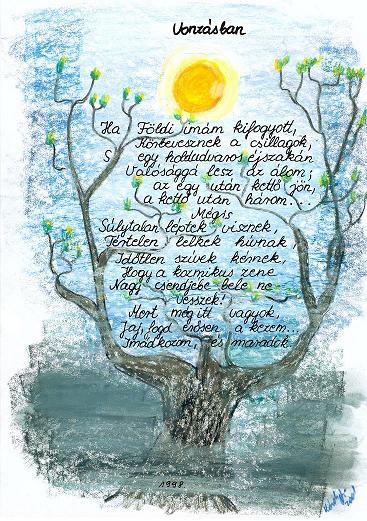 Vonzásban
Ha Földi imám kifogyott,
Körbevesznek a csillagok,
S egy holdudvaros éjszakán
Valósággá lesz az álom;
az egy után kettő jön,
a kettő után három...
Mégis
Súlytalan léptek visznek,
Testetlen lelkek hívnak,
Időtlen szívek kérnek,
Hogy a kozmikus zene
Nagy csendjébe bele ne
vesszek!
Mert még itt vagyok,
Jaj, fogd erősen a kezem...
Imádkozom, és maradok.
1998.